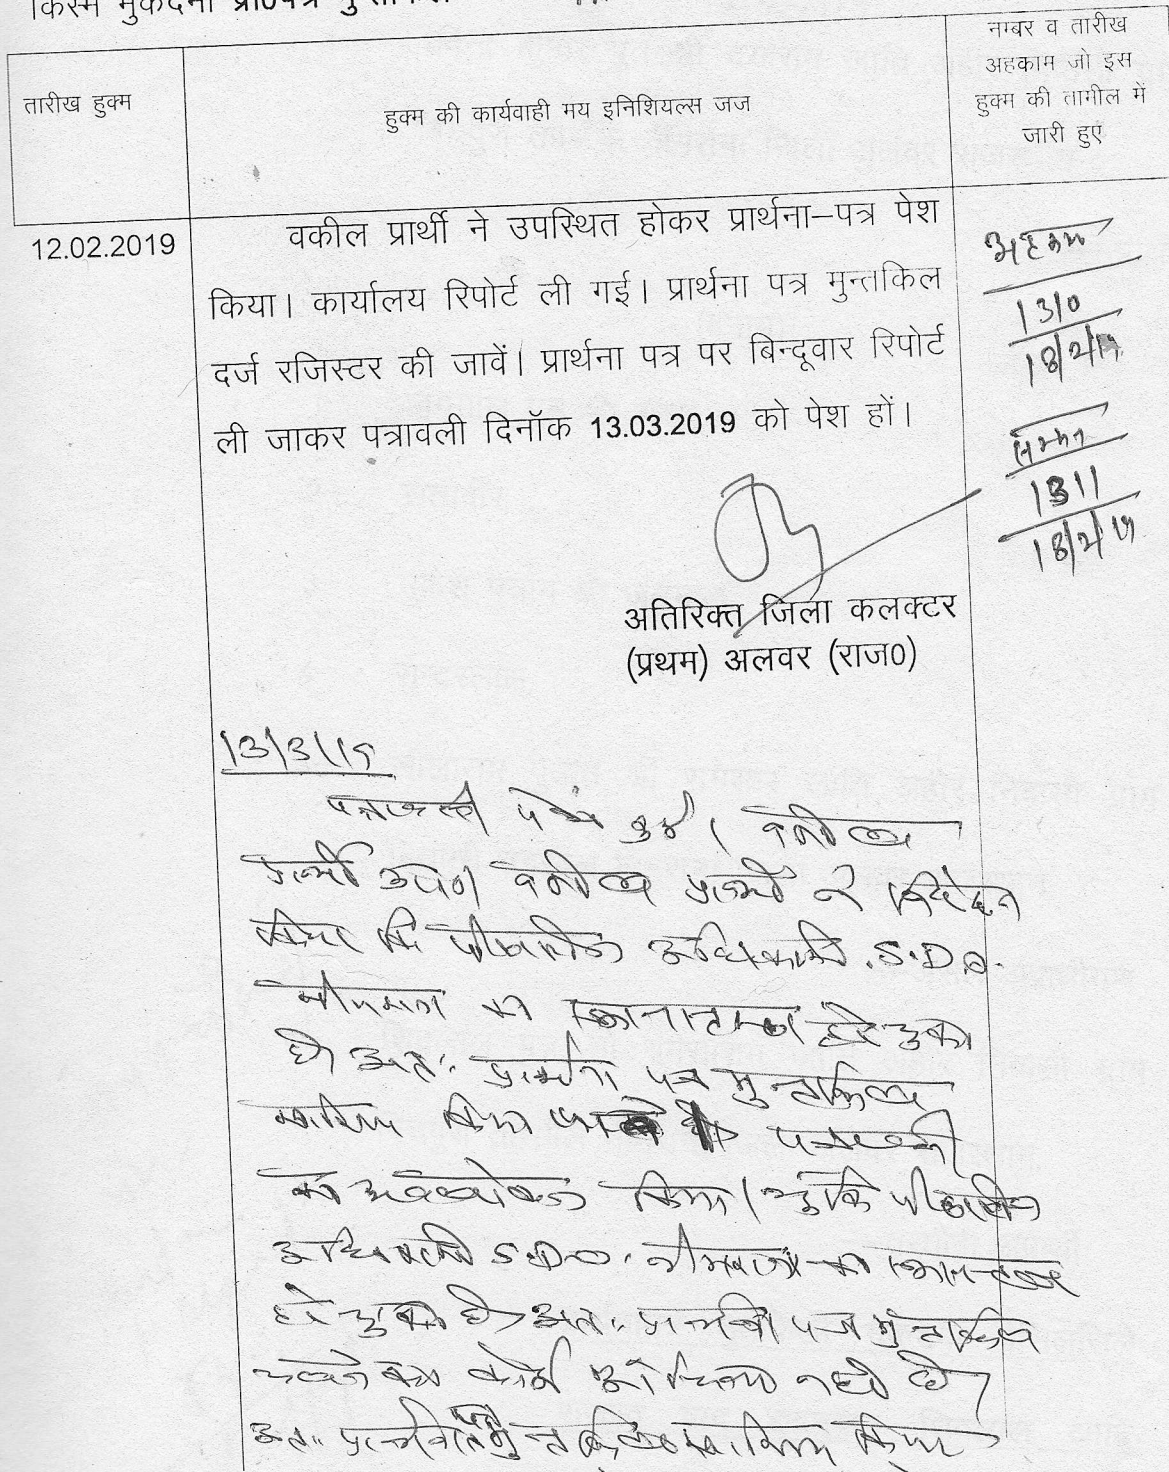 किस्म मुकदमा प्रा0पत्र मुन्तकिल
तारीख हुक्म
हुक्म की कार्यवाही मय इनिशियल्स जज
नम्बर व तारीख
अहकाम जो इस
हुक्म की तामील में
जारी हुए
12.02.2019
वकील प्रार्थी ने उपस्थित होकर प्रार्थना–पत्र पेश
किया। कार्यालय रिपोर्ट ली गई। प्रार्थना पत्र मुन्तकिल
दर्ज रजिस्टर की जावें। प्रार्थना पत्र पर बिन्दूवार रिपोर्ट
ली जाकर पत्रावली दिनॉक 13.03.2019 को पेश हों।
अहकाम
1310
18/2/19
सम्मन
1311
18/2/19
अतिरिक्त जिला कलक्टर
(प्रथम) अलवर (राज0)
13/3/19
पत्रावली पेश हुई। वकील
प्रार्थी उप0। वकील प्रार्थी ने निवेदन
किया कि पीठासीन अधिकारी S.D.O.
का स्थानान्तरण हो चुका
है। अतः प्रार्थना पत्र मुन्तकिल
खारिज किया जावे पत्रावली
का अवलोकन किया। चूंकि पीठासीन
अधिकारी S.D.O. का स्थानान्तरण
हो चुका है। अतः प्रार्थना पत्र मुन्तकिल
का कोई औचित्य नहीं है।
अतः प्रार्थना पत्र मुन्तकिल खारिज किया